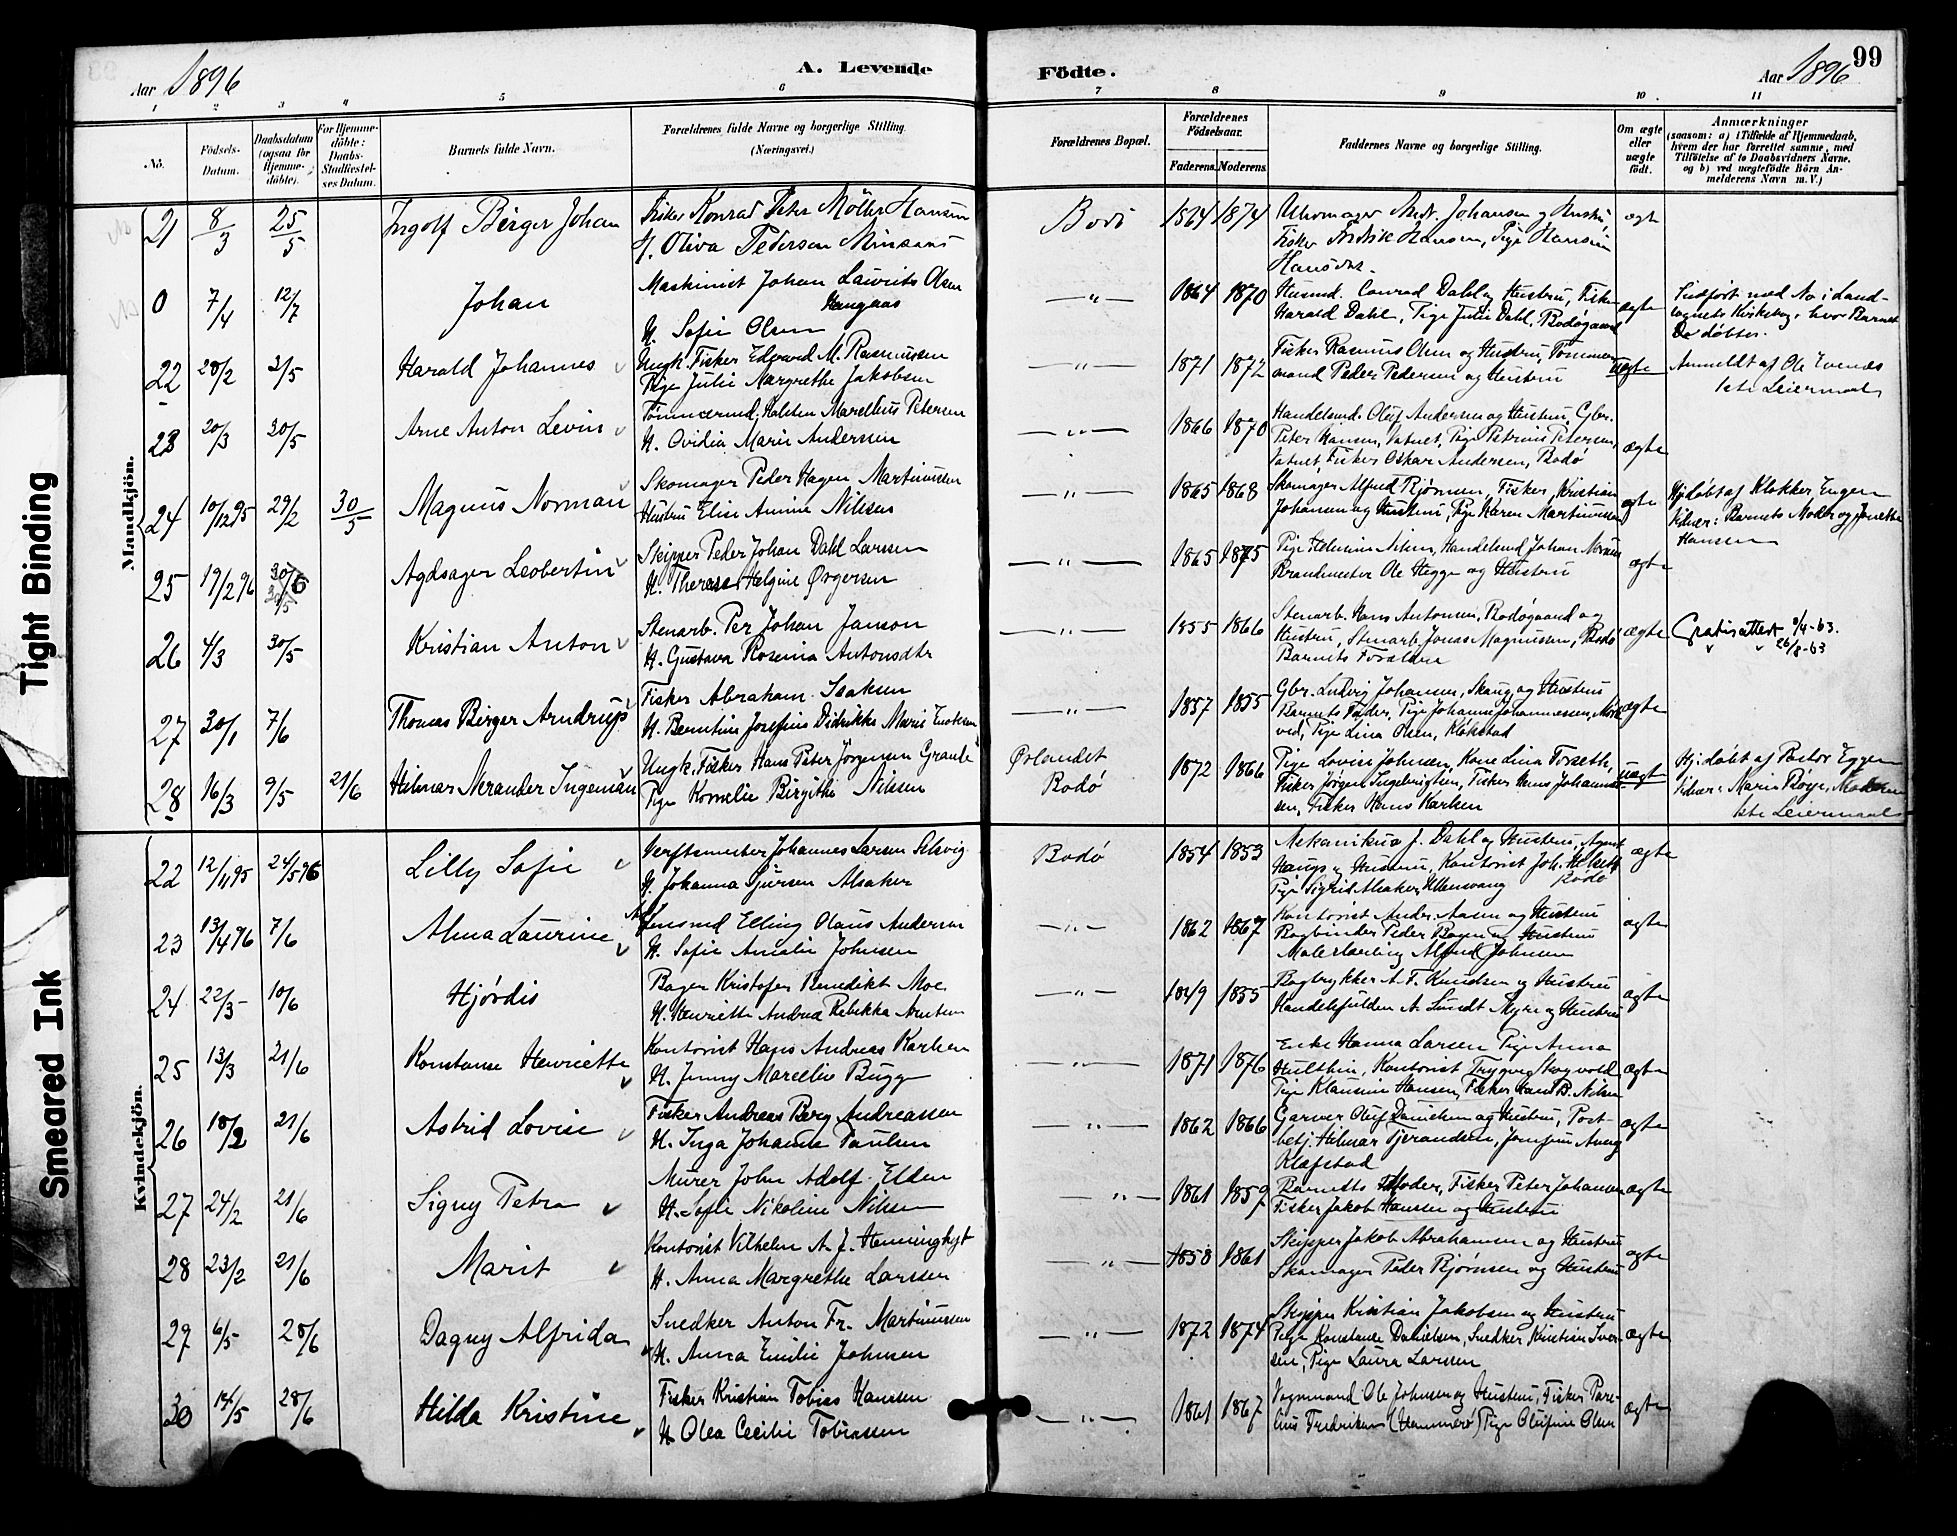 Aar 1896
A. Levende
Födte.
Aar 1896
99
1 2 3 4 5 6 7 8 9 10 11
No.
Födsels-Datum.
Daabsdatum (ogsaa for Hjemme-döbte).
For Hjemme-döbte: Daabs-Stadfæstel-ses Datum.
Barnets fulde Navn.
Forældrenes fulde Navne og borgerlige Stilling. (Næringsvei.)
Forældrenes Bopæl.
Forældrenes Födselsaar.
Faderens. Moderens.
Faddernes Navne og borgerlige Stilling.
Om ægte eller uægte födt.
Anmærkninger
(saasom: a) i Tilfælde af Hjemmedaab, hvem der har forrettet samme, med Tilföielse af to Daabsvidners Navne, og b) ved uægtefödte Börn An-melderens Navn m. V.)
Tight Binding
Smeared Ink
Mandkjön.
21 8/3 25/5 Ingolf Birger Johan Fisker Konrad Peter Möller Hansen Bodö 1864 1874 Uhrmager Andr. Johansen og Hustru, ægte
H. Oliva Pedersen Fisker Fredrik Hansen, Pige
0 7/4 12/7 Johan Maskinist Johan Lauritz Olsen Haugaas —"— 1864 1870 Husmd. Conrad Dahl og Hustru, Fisker ægte Indført med No i Land-
H. Sofie Olsen Harald Dahl, Pige Julie Dahl, Bodøgaard sognets Kirkebog, hvor Barnet
Er døbt.
22 28/2 3/5 Harald Johannes Ungk. Fisker Edvard M. Rasmussen —"— 1871 1872 Fisker Rasmus Olsen og Hustru, Tømmer- uægte Anmeldt af Ole Evenes
Pige Julie Margrethe Jakobsen mand Peder Pedersen og Hustru 1ste Leiermaal
23 20/3 30/5 Arne Anton Levin Tømmermd. Halsten Marelius Petersen —"— 1866 1870 Handelsmd. Oluf Andersen og Hustru, Gbr. ægte
H. Ovidia Marie Andersen Peter Hansen, Vatnet, Pige Petrine Petersen,
Vatnet, Fisker Oskar Andersen, Bodø
24 10/12 95 29/2 30/5 Magnus Norman Skomager Peder Hagen Martinussen —"— 1865 1868 Skomager Alfred Bjørnsen, Fisker Kristian ægte Hjdøbt af Klokker Engen
Hustru Elise Amine Nilsen Johansen og Hustru, Pige Karen Martinussen Vidner: Barnets Moder og Jonette
Hansen
25 19/2 96 30/5 Agdsager Leobertin Skipper Peder Johan Dahl Larssen —"— 1865 1875 Pige Helmine Nilsen, Handelsmd Johan ægte
H. Therese Helgine Ørgersen Brandmester Ole Hegge og Hustru
26 4/3 30/5 Kristian Anton Stenarb. Per Johan Janson —"— 1855 1866 Stenarb. Hans Antonsen, Bodøgaard og ægte Gratisattest 8/4-63.
H. Gustava Rosina Antonsdtr Hustru, Stenarb. Jonas Magnussen, Bodø " " 26/8-63
Barnets Forældre
27 30/1 7/6 Thomas Birger Arndrup Fisker Abraham Isaksen —"— 1857 1855 Gbr. Ludvig Johansen, Skaug og Hustru ægte
H. Berntine Josefine Didrikke Marie Enoksen Barnets Fader, Pige Johanne Johannessen,
Pige Lina Olsen, Klokstad
28 16/3 9/5 21/6 Hilmar Nerander Ingeman Ungk. Fisker Hans Peter Jørgensen Grande Ørlandet 1872 1866 Pige Lovise Johnsen, Kone Lina Forseth, uægte Hjdøbt af Pastor Eggen
Pige Kornelie Birgithe Nilsen Bodø Fisker Jørgen Ingebrigtsen, Fisker Hans Johannes- Vidner: Marie Bøye, Moderen
sen, Fisker Hans Karlsen 1ste Leiermaal
Kvindekjön.
22 12/11 95 24/5 96 Lilly Sofie Verftsmester Johannes Larsen Selsvig Bodø 1854 1853 Mekanikus J. Dahl og Hustru, Agent ægte
H. Johanna Sjursen Alsaker Haugs og Hustru, Kontorist Joh. Bodø
Pige Sigrid Alsaker, Ullensvang
23 13/4 96 7/6 Alma Laurine Elling Olaus Andersen —"— 1862 1867 Kontorist Andr. Aasen og Hustru ægte
H. Sofie Amalie Johnsen Bogbinder Peder Boyen og Hustru
Malerlærling Alfred Johnsen
24 22/3 10/6 Hjørdis Bager Kristofer Benedikt Moe —"— 1849 1855 Bogtrykker A. F. Knudsen og Hustru ægte
H. Henriette Andrea Rebekka Arntsen Handelsfuldm. A. Lundt Myre og Hustru
25 13/3 21/6 Konstanse Henriette Kontorist Hans Andreas Karlsen —"— 1871 1876 Enke Hanna Larsen Pige Anna ægte
H. Jenny Marcelie Bugge Hulthin, Kontorist Trygve Skogvold
Pige Klausine Hansen, Fisker Hans B. Nilsen
26 18/2 21/6 Astrid Lovise Fisker Andreas Berg Andreassen —"— 1862 1866 Garver Oluf Danielsen og Hustru, Post- ægte
H. Inga Johanna Paulsen betj. Hilmar Tjerandsen, Josefine Aung
Klæfstad
27 24/2 21/6 Signy Petra Murer John Adolf Elden —"— 1861 1859 Barnets Moder, Fisker Peter Johansen ægte
H. Sofie Nikoline Nilsen Fisker Jakob Hansen og Hustru
28 23/2 21/6 Marit Kontorist Vilhelm A. J. Heminghyt —"— 1858 1861 Skipper Jakob Abrahamsen og Hustru ægte
H. Anna Margrethe Larssen Skomager Peder Bjørnsen og Hustru
29 6/5 28/6 Dagny Alfrida Snedker Anton Fr. Martinussen —"— 1872 1874 Skipper Kristian Jakobsen og Hustru ægte
H. Anna Emilie Johnsen Pige Konstanse Danielsen, Snedker Kristian Iver-
sen, Pige Laura Larssen
30 14/5 28/6 Hilda Kristine Fisker Kristian Tobias Hanssen —"— 1861 1867 Vognmand Ole Johnsen og Hustru, Fisker Pare- ægte
H. Olea Cecilie Tobiassen lius Fredriksen (Hammerø) Pige Olufine Olsen